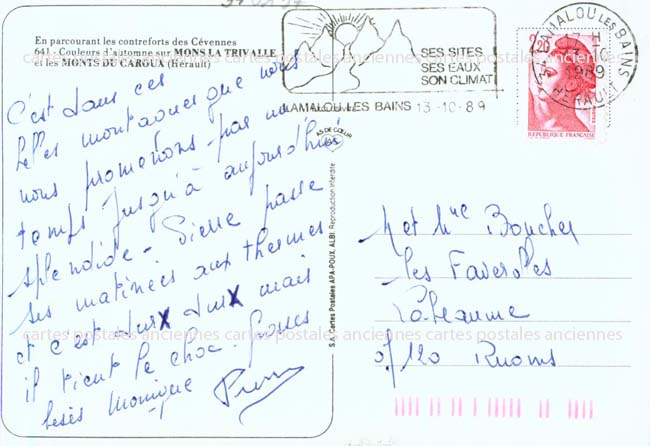 En parcourant les contreforts des Cévennes
641 - Couleurs d'automne sur MONS LA TRIVALLE
et les MONTS DU CAROUX (Hérault)
C'est dans ces
belles montagnes que nous
nous promenons par un
temps jusqu'à aujourd'hui
splendide - Pierre passe
ses matinées aux thermes
et c'est dur dur mais
il tient le choc. Grosses
bises Monique Pierre
SES SITES
SES EAUX
SON CLIMAT
LAMALOU LES BAINS 13-10-89
LAMALOU LES BAINS
HERAULT
2,20
REPUBLIQUE FRANÇAISE
AS DE CŒUR
S.A. Cartes Postales APA-POUX, ALBI. Reproduction interdite
M et Mme Boucher
Les Faveroles
Labeaume
07120 Ruoms
cartes postales anciennes cartes postales anciennes cartes postales anciennes